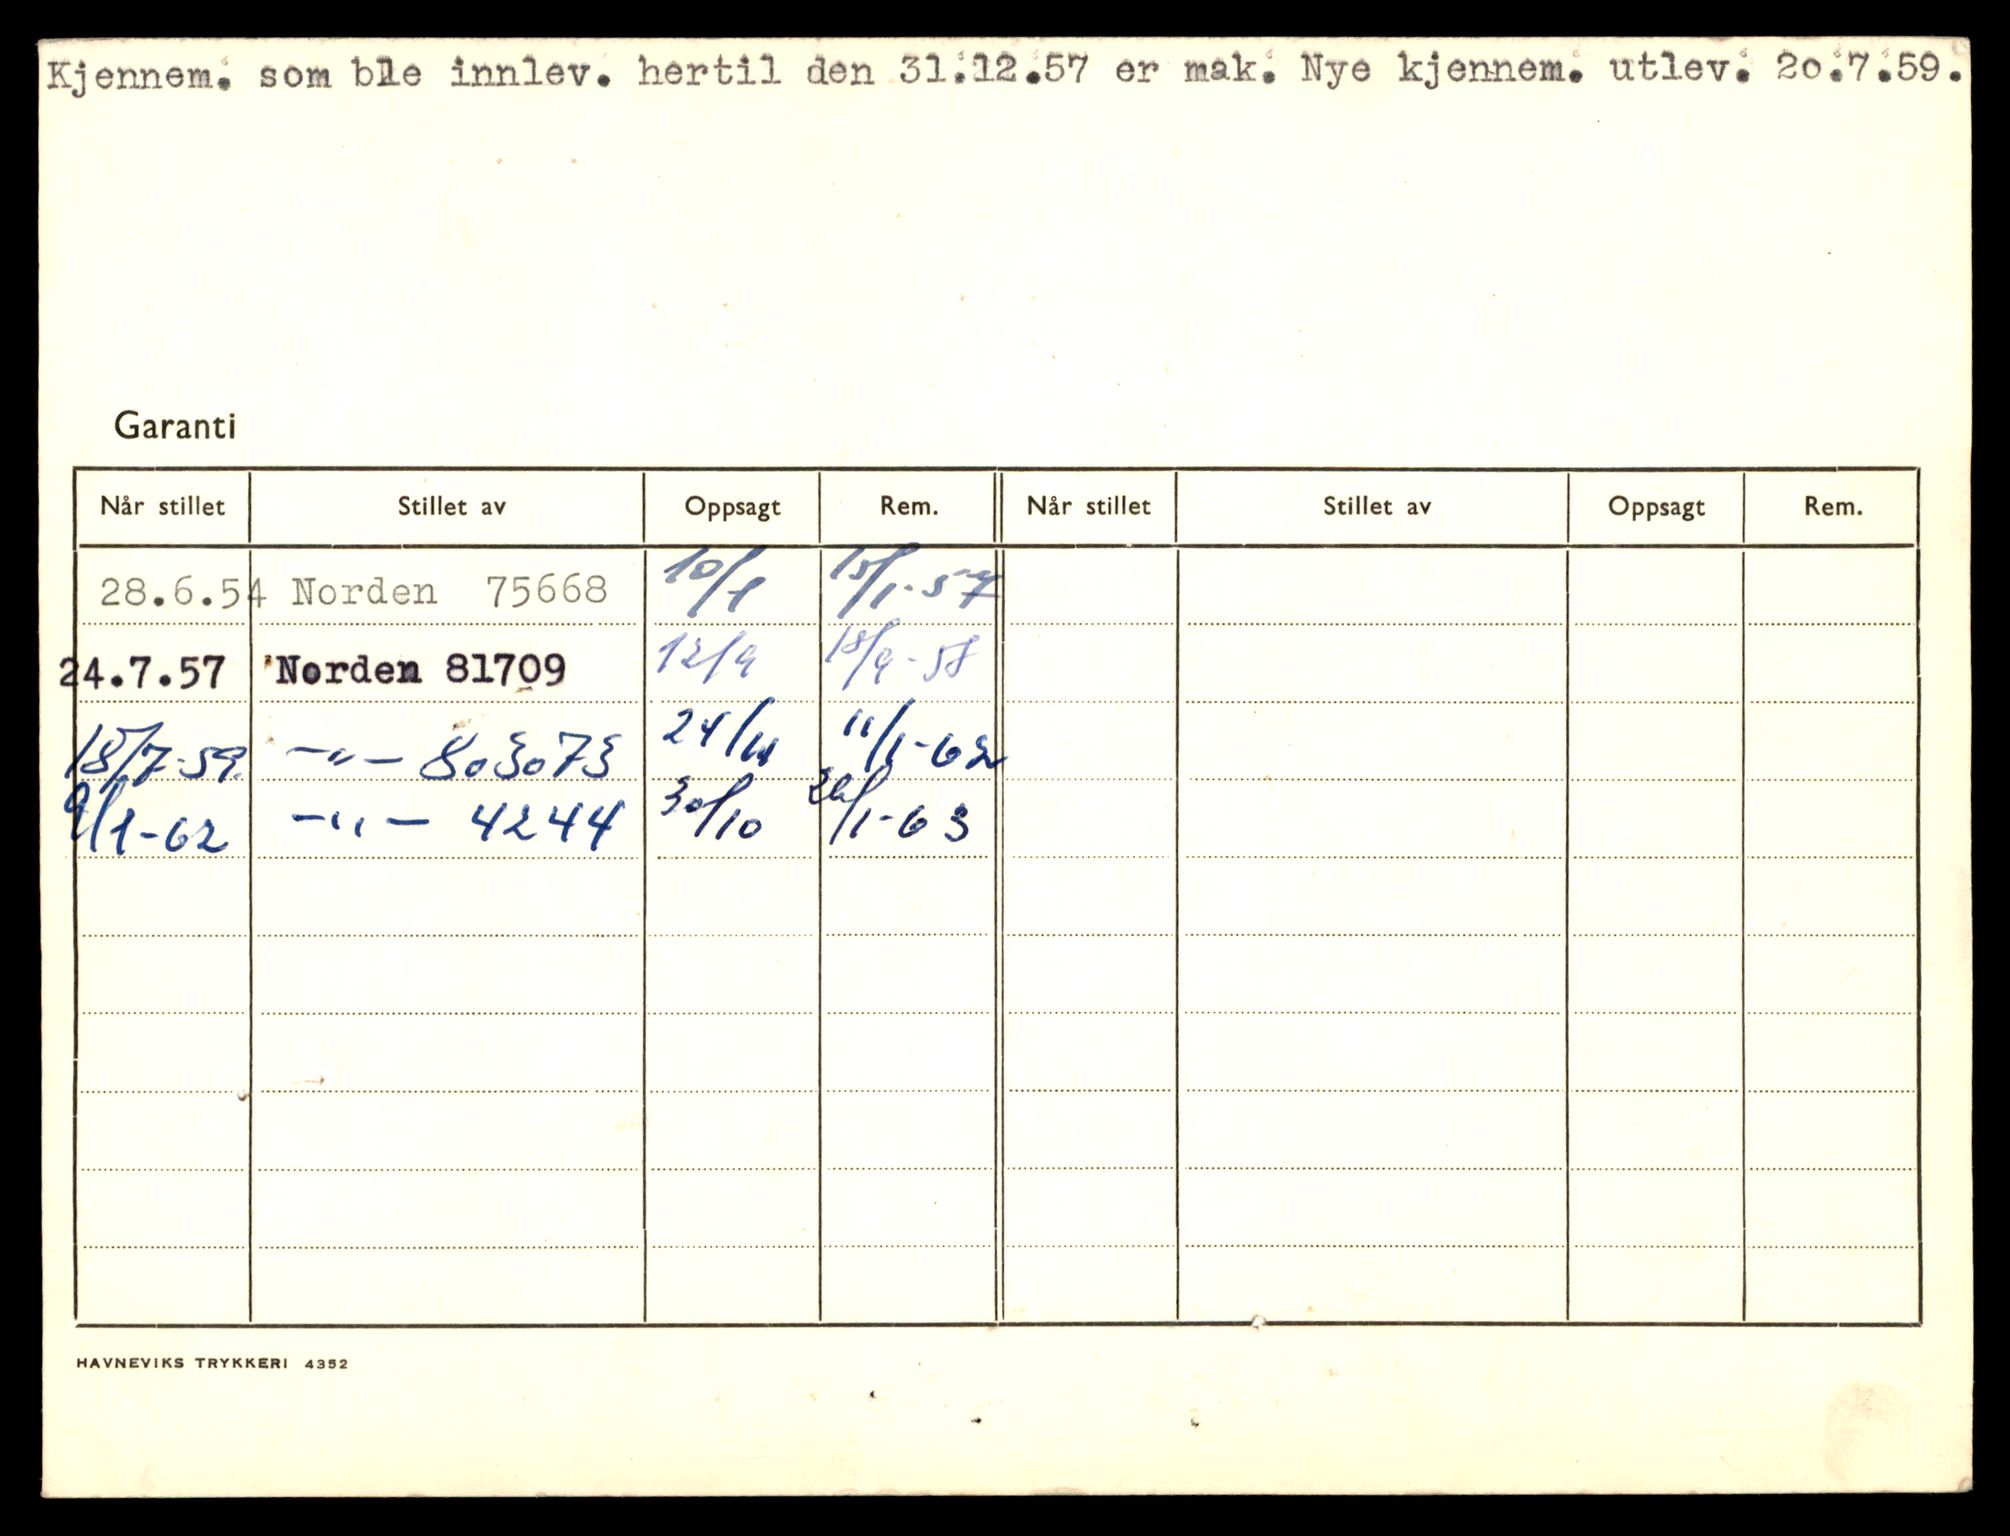 Kjennem. som ble innlev. hertil den 31.12.57 er mak. Nye kjennem. utlev. 20.7.59.
Garanti
Når stillet Stillet av Oppsagt Rem. Når stillet Stillet av Oppsagt Rem.
28.6.54 Norden 75668 10/1 15/1-57
24.7.57 Norden 81709 12/9 18/9-58
18/7-59. -"- 803073 24/11 11/1-62
9/1-62 -"- 4244 30/10 /1-63
HAVNEVIKS TRYKKERI 4352